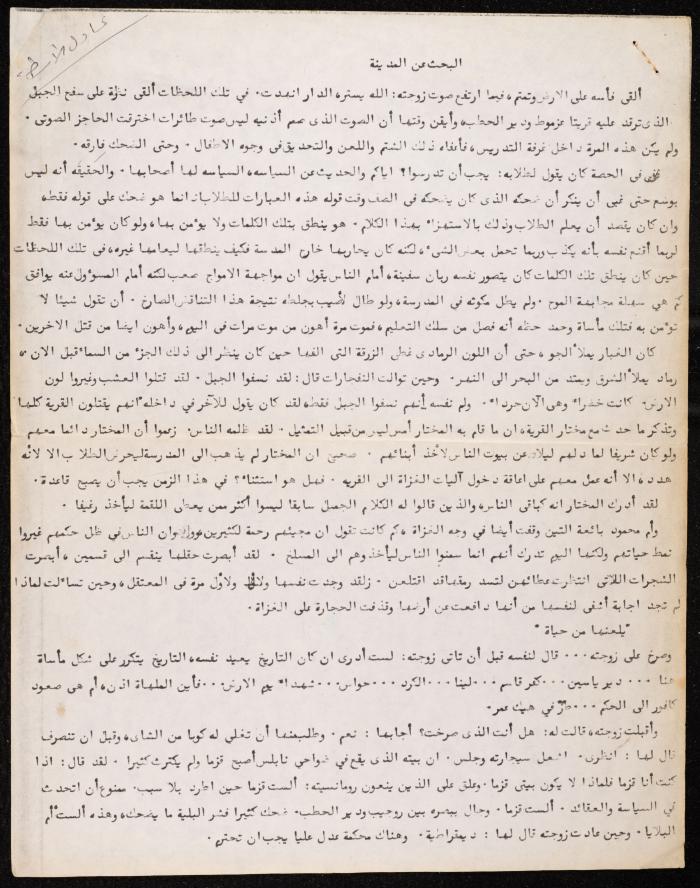 عادل الأسطة
البحث عن المدينة
ألقى فأسه على الارض وتمتم، فيما ارتفع صوت زوجته: الله يستره الدار انهدت. في تلك اللحظات ألقى نظرة على سفح الجبل
الذى ترقد عليه قريتا عزموط ودير الحطب، وأيقن وقتها أن الصوت الذى صم أذنيه ليس صوت طائرات اخترقت الحاجز الصوتي.
ولم يكن هذه المرة داخل غرفة التدريس، فأعفاه ذلك الشتم واللعن والتحديق في وجوه الاطفال. وحتى الضحك فارقه.
في الحصة كان يقول لطلابه: يجب أن تدرسوا؟ اياكم والحديث عن السياسه، السياسه لها أصحابها. والحقيقه أنه ليس
بوسع حتى غبي أن ينكر أن ضحكه الذى كان يضحكه في الصف وقت قوله هذه العبارات للطلاب انما هو ضحك على قوله فقط،
وان كان يقصد أن يعلم الطلاب وذلك بالاستهزاء بهذا الكلام. هو ينطق بتلك الكلمات ولا يؤمن بها، ولو كان يؤمن بها فقط
لربما أقنع نفسه بأنه يكذب وربما تحمل بعض الشيء، لكنه كان يحاربها خارج المدرسة فكيف ينطقها ليعلمها غيره، في تلك اللحظات
حين كان ينطق تلك الكلمات كان يتصور نفسه ربان سفينة، أمام الناس يقول ان مواجهة الامواج صعب لكنه أمام المسؤول عنه يوافق
كم هي سهلة مجابهة الموج. ولم يطل مكوثه في المدرسة، ولو طال لأصيب بجلطه نتيجة هذا التناقض الصارخ. أن تقول شيئا لا
تؤمن به فتلك مأساة وحمد حظه أنه فصل من سلك التعليم، فموت مرة أهون من موت مرات في اليوم، وأهون ايضا من قتل الاخرين.
كان الغبار يملأ الجو، حتى أن اللون الرمادى غطى الزرقة التي ألفها حين كان ينظر الى ذلك الجزء من السماء قبل الآن،
رماد يملأ الشرق ويمتد من البحر الى النهر. وحين توالت التفجارات قال: لقد نسفوا الجبل. لقد قتلوا العشب وغيروا لون
الارض. كانت خضراء وهي الآن جرداء. ولم نفسه أنهم نسفوا الجبل فقط، لقد كان يقول للآخر في داخله انهم يقتلون القرية كلها
وتذكر ما حدث مع مختار القرية، ان ما قام به المختار أمس ليس من قبيل التمثيل. لقد ظلمه الناس. زعموا أن المختار دائما معهم
ولو كان شريفا لما دلهم ليلا على بيوت الناس لأخذ أبنائهم. صحيح ان المختار لم يذهب الى المدرسة ليحرض الطلاب الا لأنه
هدد، الا أنه عمل معهم على اعاقة دخول آليات الغزاة الى القريه. فهل هو استثناء؟ في هذا الزمن يجب أن يصبح قاعدة.
لقد أدرك المختار انه كباقي الناس، والذين قالوا له الكلام الجميل سابقا ليسوا أكثر ممن يعطي اللقمة ليأخذ رغيفا.
وأم محمود بائعة التين وقفت أيضا في وجه الغزاة، كم كانت تقول ان مجيئهم رحمة لكثيرين، وان الناس في ظل حكمهم غيروا
نمط حياتهم ولكنها اليوم تدرك أنهم انما سمنوا الناس ليأخذوهم الى المسلخ. لقد أبصرت حقلها ينقسم الى قسمين، أبصرت
الشجرات اللائي انتظرت عطائهن لتسد رمقها قد اقتلعن. ولقد وجدت نفسها ولأول مرة في المعتقل، وحين تسائلت لماذا
لم تجد اجابة أشفى لنفسها من أنها دافعت عن أرضها وقذفت الحجارة على الغزاة.
"يلعنها من حياة"
وصرخ على زوجته... قال لنفسه قبل أن تأتي زوجته: لست أدرى ان كان التاريخ يعيد نفسه، التاريخ يتكرر على شكل مأساة
هنا... دير ياسين... كفر قاسم... لينا... الكرد... حواس... شهداء يوم الارض... فأين الملهاة اذن، أم هي صعود
كافور الى الحكم... طز في هيك عمر.
وأقبلت زوجته، قالت له: هل أنت الذى صرخت؟ أجابها: نعم. وطلب منها أن تغلي له كوبا من الشاى، وقبل ان تنصرف
قال لها: انظرى. اشعل سيجارته وجلس. ان بيته الذى يقع في ضواحي نابلس أصبح قزما ولم يكترث كثيرا. لقد قال: اذا
كنت أنا قزما فلماذا لا يكون بيتي قزما. وعلق على الذين ينعون رومانسيته: ألست قزما حين اطرد بلا سبب. ممنوع أن اتحدث
في السياسة والعقائد. ألست قزما. وجال ببصره بين روجيب ودير الحطب. ضحك كثيرا فشر البلية ما يضحك، وهذه ألست أم
البلايا. وحين عادت زوجته قال لها: ديمقراطية. وهناك محكمة عدل عليا يجب ان تحترم.